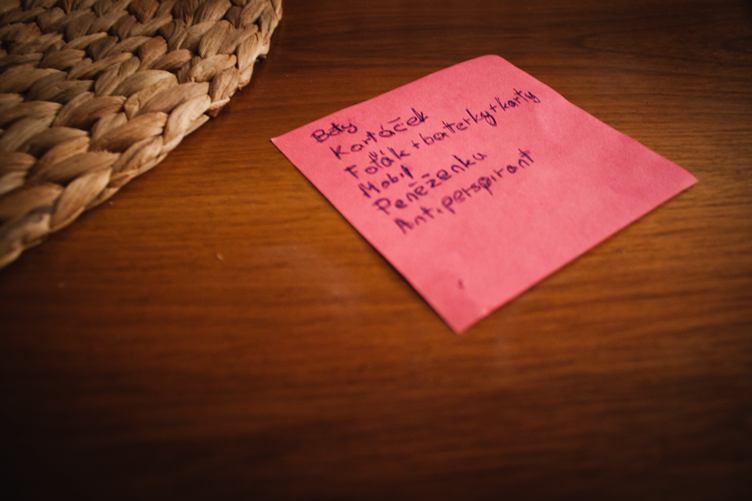 Boty
Kartáček
Foťák + baterky + karty
Mobil
Peněženku
Antiperspirant